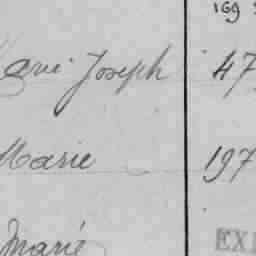 169
Joseph 47
Marie 197
Marie
EX